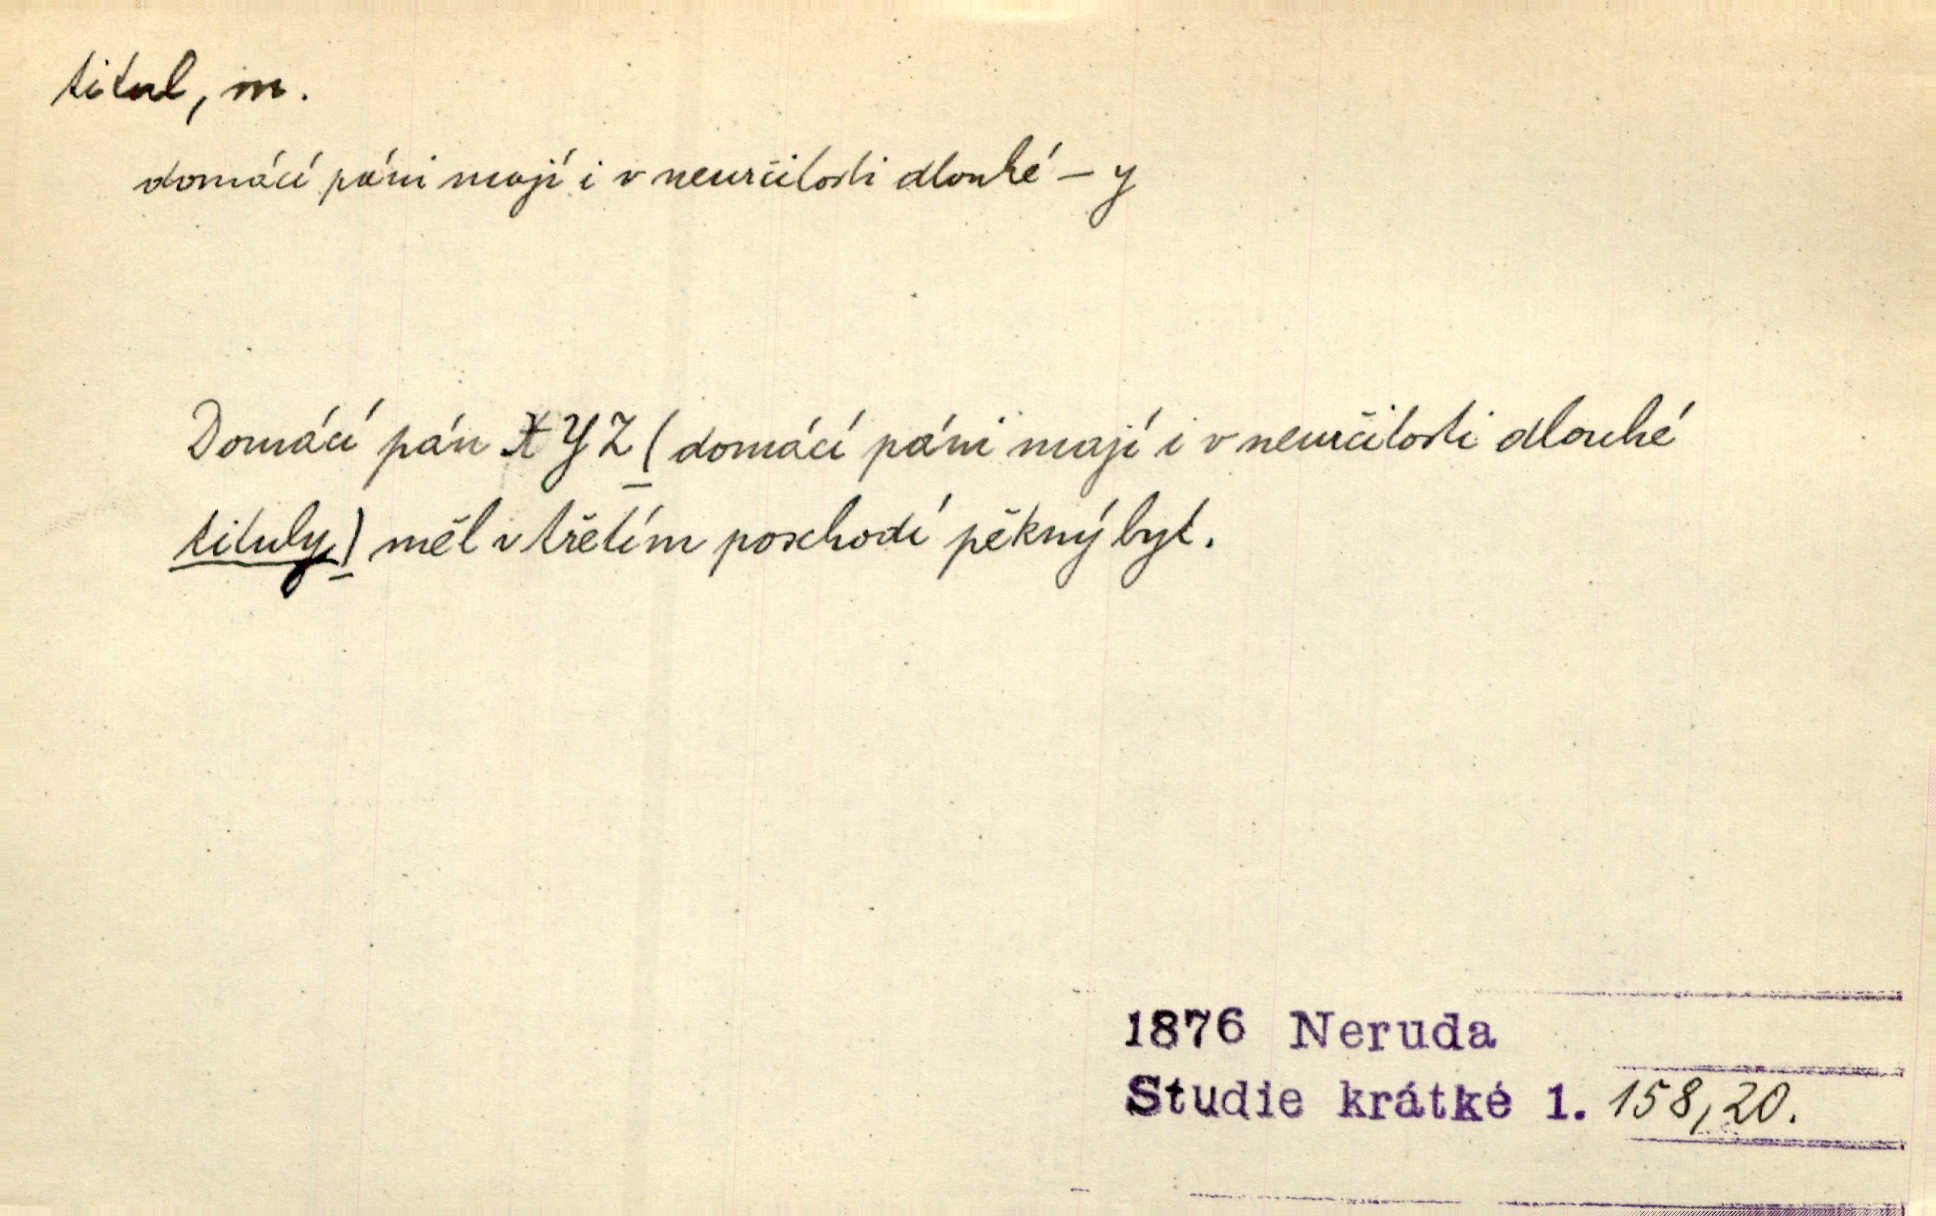 titul, m.
domácí páni mají i v neurčitosti dlouhé – y
Domácí pán X Y Z (domácí páni mají i v neurčitosti dlouhé
tituly) měl v třetím poschodí pěkný byt.
1876 Neruda
Studie krátké 1. 158,20.